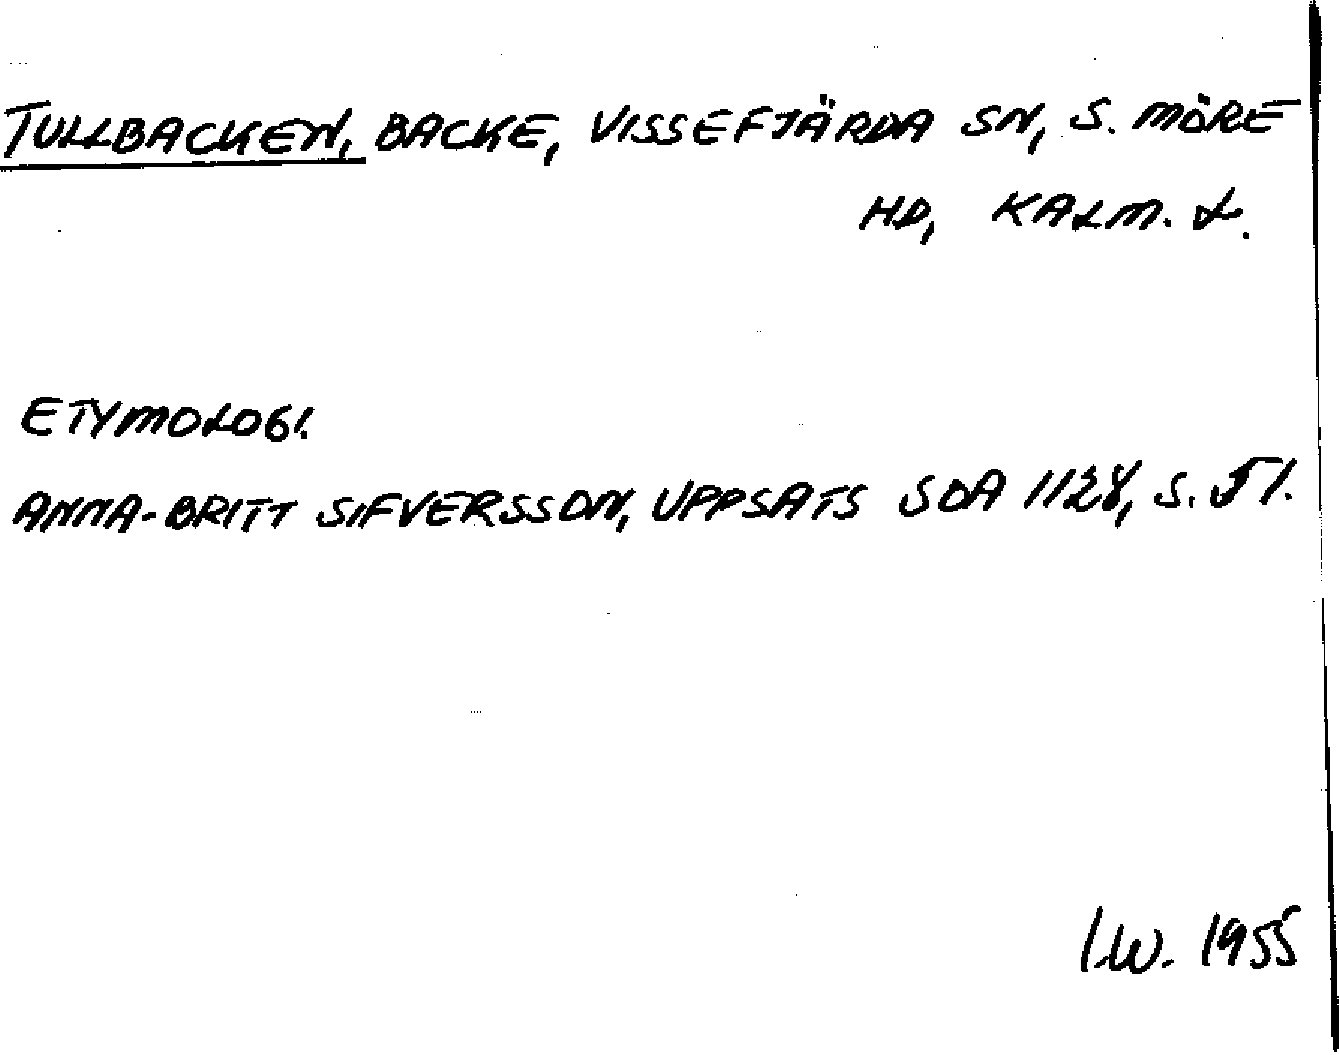 TULLBACKEN, BACKE, VISSEFJÄRDA SN, S. MÖRE
HD, KALM. L.
ETYMOLOGI.
ANNA-BRITT SIFVERSSON, UPPSATS SOA 1128, S. 51.
I.W. 1955